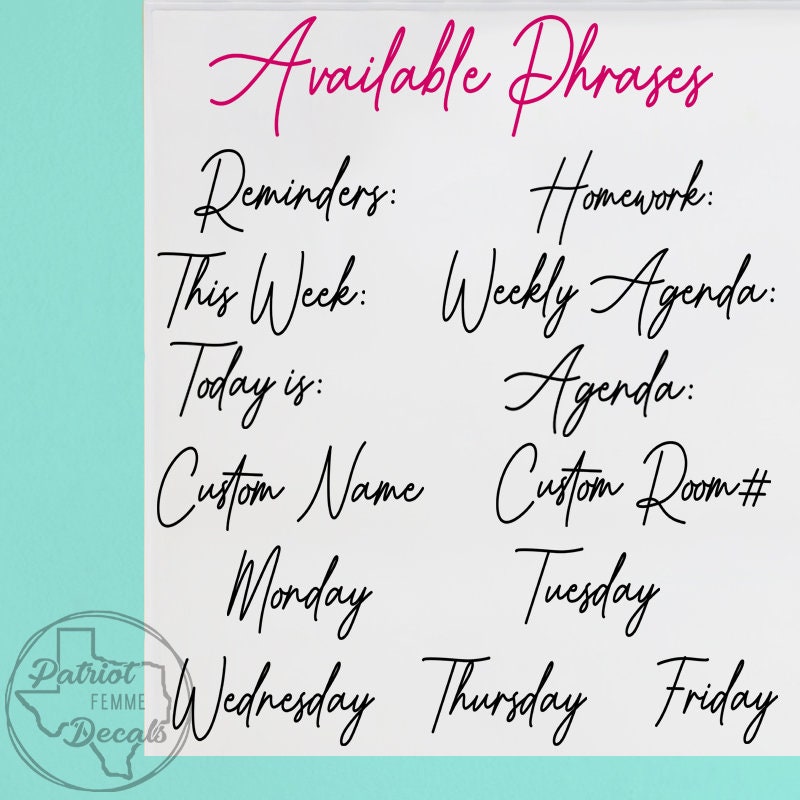 Available Phrases
Reminders: Homework:
This Week: Weekly Agenda:
Today is: Agenda:
Custom Name Custom Room#
Monday Tuesday
Wednesday Thursday Friday
Patriot
FEMME
Decals